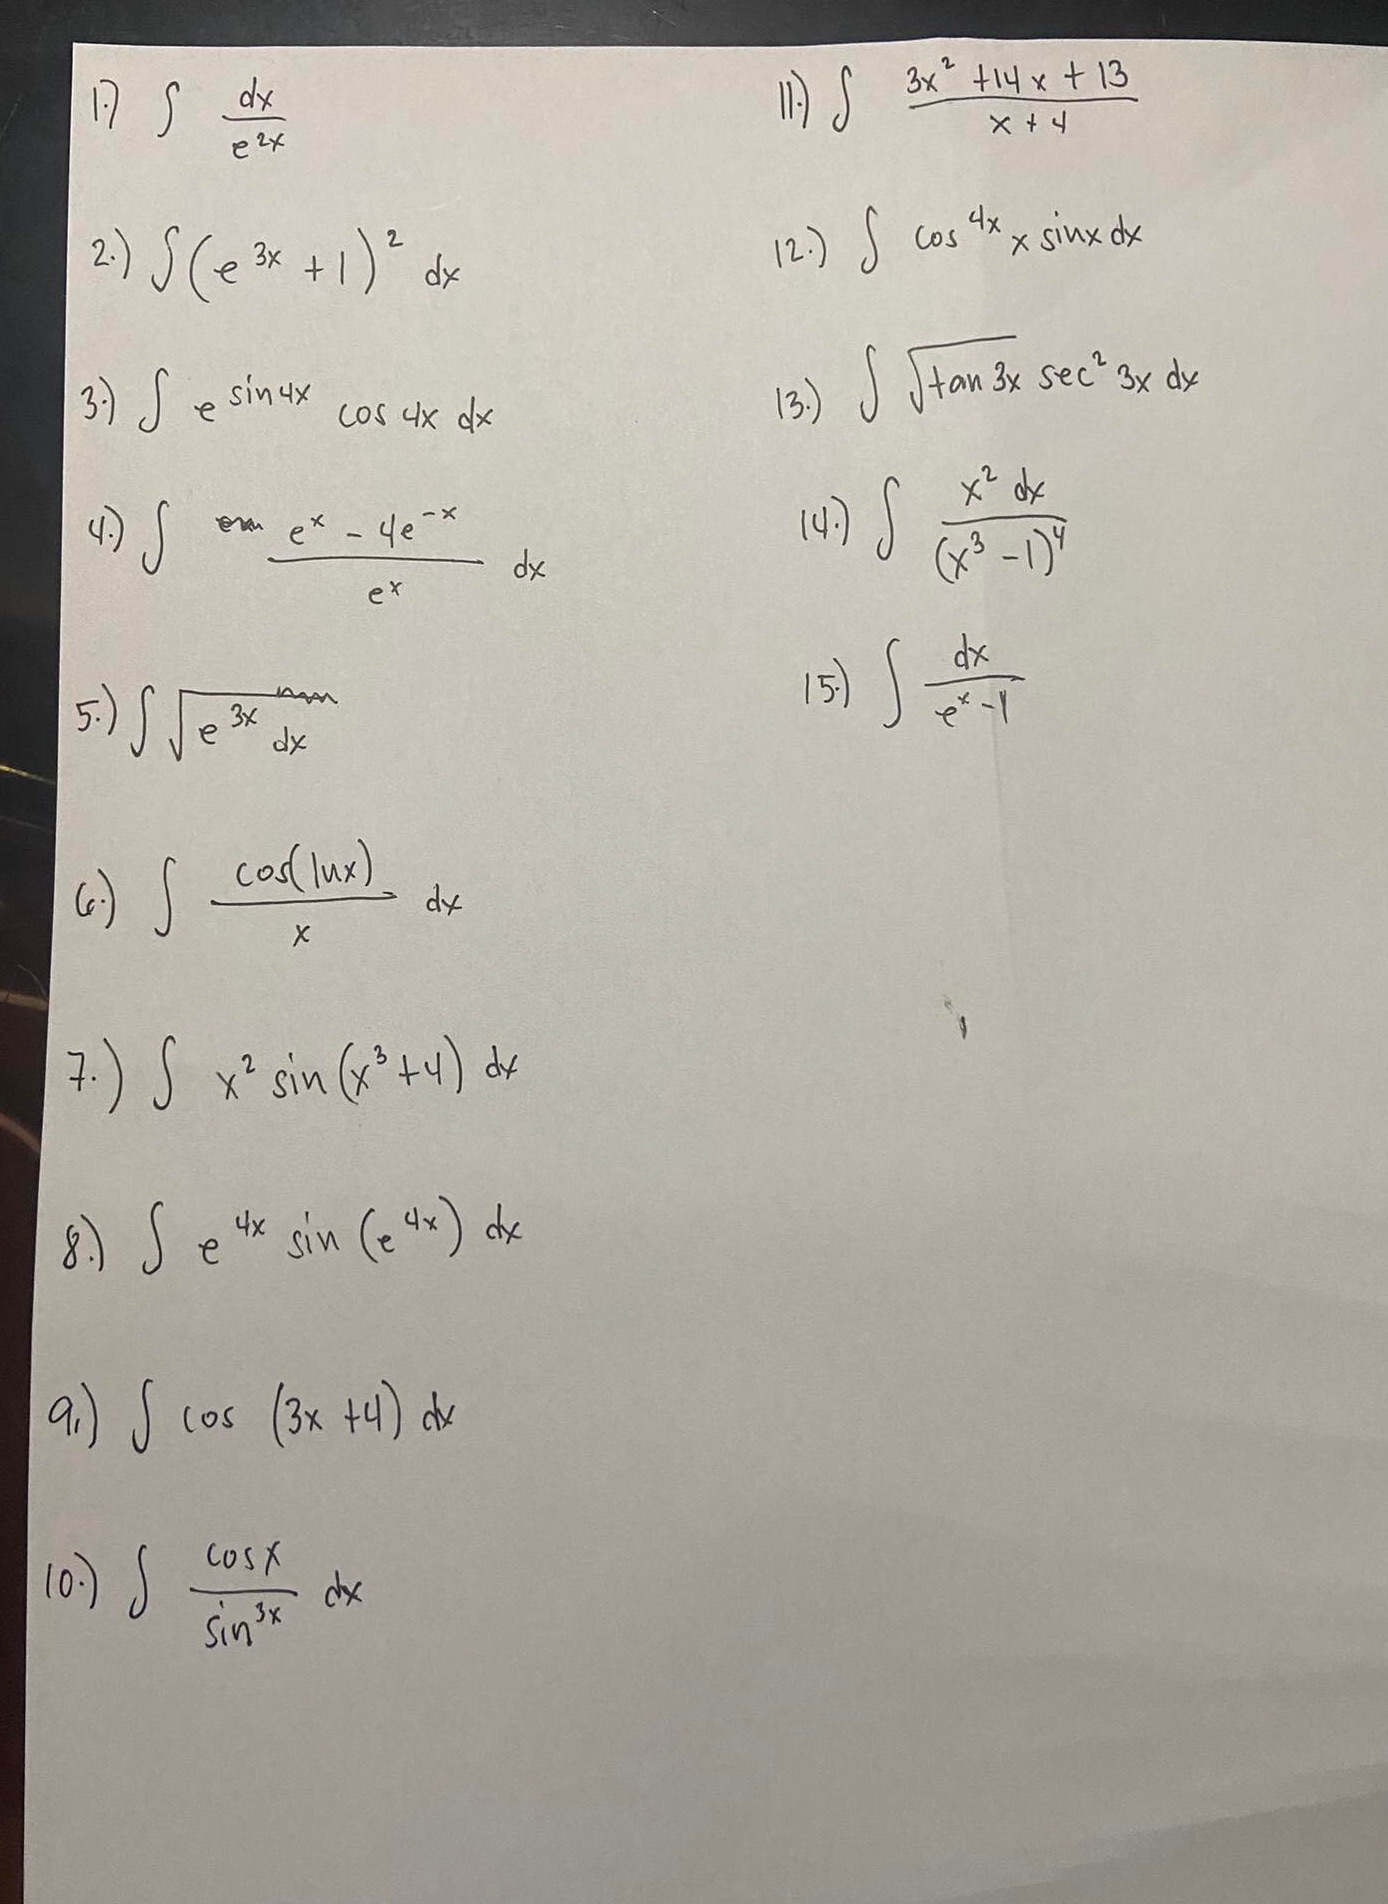 1.) ∫ dx / e^{2x}
2.) ∫ (e^{3x} + 1)^2 dx
3.) ∫ e^{sin 4x} cos 4x dx
4.) ∫ (e^x - 4e^{-x}) / e^x dx
5.) ∫ √(e^{3x} dx)
6.) ∫ cos(lnx) / x dx
7.) ∫ x^2 sin (x^3 + 4) dx
8.) ∫ e^{4x} sin (e^{4x}) dx
9.) ∫ cos (3x + 4) dx
10.) ∫ cosx / sin^{3x} dx
11.) ∫ (3x^2 + 14x + 13) / (x + 4)
12.) ∫ cos^{4x} x sinx dx
13.) ∫ √(tan 3x) sec^2 3x dx
14.) ∫ x^2 dx / (x^3 - 1)^4
15.) ∫ dx / (e^x - 1)